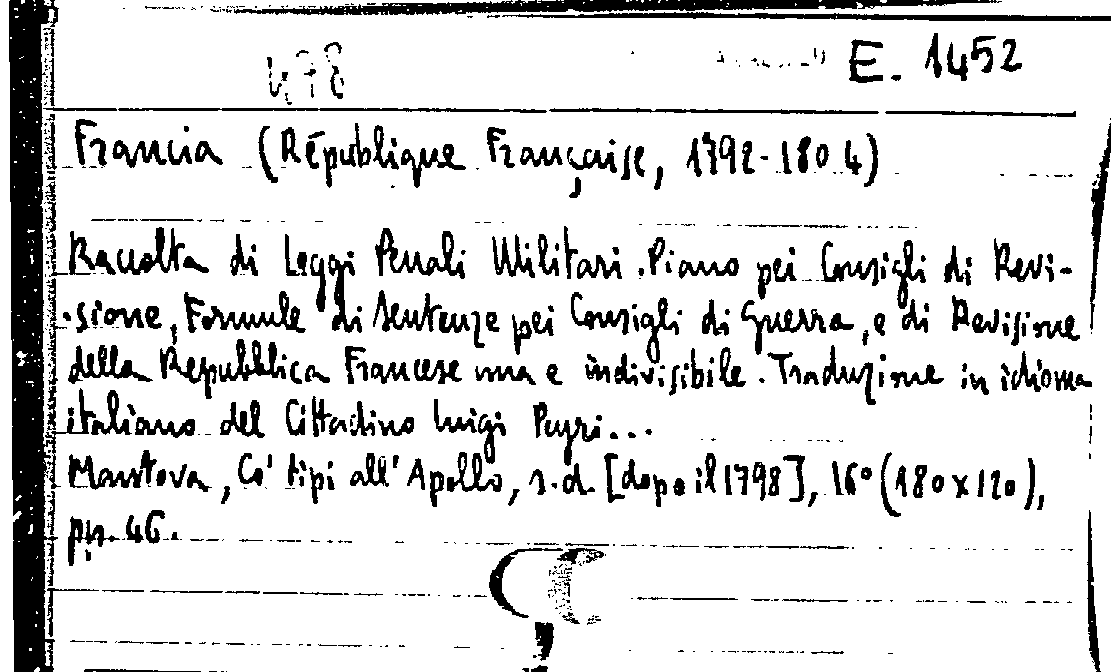 478 E. 1452
Francia (République Française, 1792-1804)
Raccolta di Leggi Penali Militari. Piano pei Consigli di Revi-
-sione, Formule di Sentenze pei Consigli di Guerra, e di Revisione
della Repubblica Francese una e indivisibile. Traduzione in idioma
italiano del Cittadino Luigi Peyri...
Mantova, Co' tipi all'Apollo, s.d. [dopo il 1798], 16° (180x120),
pp. 46.